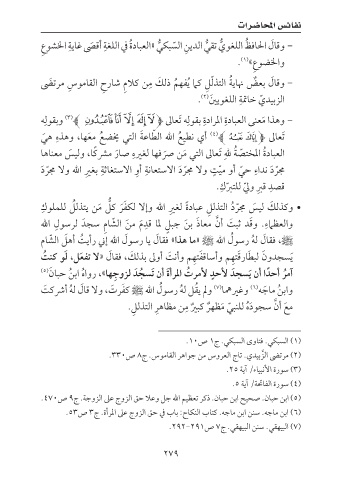 نفائس المحاضرات
- وقال الحافظُ اللغويُّ تقيُّ الدينِ السبكيُّ «العبادةُ في اللغةِ أقصَى غايةِ الخشوعِ
والخضوعِ»(١).
- وقالَ بعضٌ نهايةُ التذلّلِ كما يُفهمُ ذلكَ مِن كلامِ شارحِ القاموسِ مرتضَى
الزبيديّ خاتمةِ اللغويينَ(٢)
- وهذا مَعنى العبادةِ المرادةِ بقولِه تعالى ﴿ لَآ إِلَٰهَ إِلَّآ أَنَا۠ فَٱعْبُدُونِ ﴾(٣) وبقولِه
تعالى ﴿ إِيَّاكَ نَعْبُدُ ﴾(٤) أي نطيعُ اللهَ الطاعةَ التي يخضعُ معَها، وهذهِ هيَ
العبادةُ المختصّةُ للهِ تعالى التي مَن صرفَها لغيرِه صارَ مشركًا، وليسَ معناها
مجرّدَ نداءِ حيّ أو ميّتٍ ولا مجرّدَ الاستعانةِ أو الاستغاثةِ بغيرِ اللهِ ولا مجرّدَ
قصدِ قبرِ وليّ للتبرّكِ.
• وكذلكَ ليسَ مجرّدُ التذللِ عبادةً لغيرِ اللهِ وإلا لكفرَ كلُّ مَن يتذللُ للملوكِ
والعظماءِ. وقَد ثبتَ أنَّ معاذَ بنَ جبلٍ لما قدِمَ منَ الشّامِ سجدَ لرسولِ اللهِ
ﷺ، فقالَ لهُ رسولُ اللهِ ﷺ «ما هذا» فقالَ يا رسولَ اللهِ إني رأيتُ أهلَ الشّامِ
يَسجدونَ لبطارقَتِهم وأساقفَتِهم وأنتَ أولى بذلكَ، فقالَ «لا تفعَل، لَو كنتُ
آمرُ أحدًا أن يسجدَ لأحدٍ لأمرتُ المرأةَ أن تَسجُدَ لزوجِها»، رواهُ ابنُ حبانَ(٥)
وابنُ ماجَه(٦) وغيرهما(٧) ولم يقُل لهُ رسولُ اللهِ ﷺ كفرتَ، ولا قالَ لهُ أشركتَ
معَ أنَّ سجودَهُ للنبيّ مَظهرٌ كبيرٌ مِن مظاهرِ التذللِ.
(١) السبكي. فتاوى السبكي. ج١ ص١٠.
(٢) مرتضى الزَّبيدي. تاج العروس من جواهر القاموس. ج٨ ص٣٣٠.
(٣) سورة الأنبياء/ آية ٢٥.
(٤) سورة الفاتحة/ آية ٥.
(٥) ابن حبان. صحيح ابن حبان. ذكر تعظيم الله جل وعلا حق الزوج على الزوجة. ج٩ ص٤٧٠.
(٦) ابن ماجه. سنن ابن ماجه. كتاب النكاح: باب في حق الزوج على المرأة. ج٣ ص٥٣.
(٧) البيهقي. سنن البيهقي. ج٧ ص٢٩١-٢٩٢.
٢٧٩